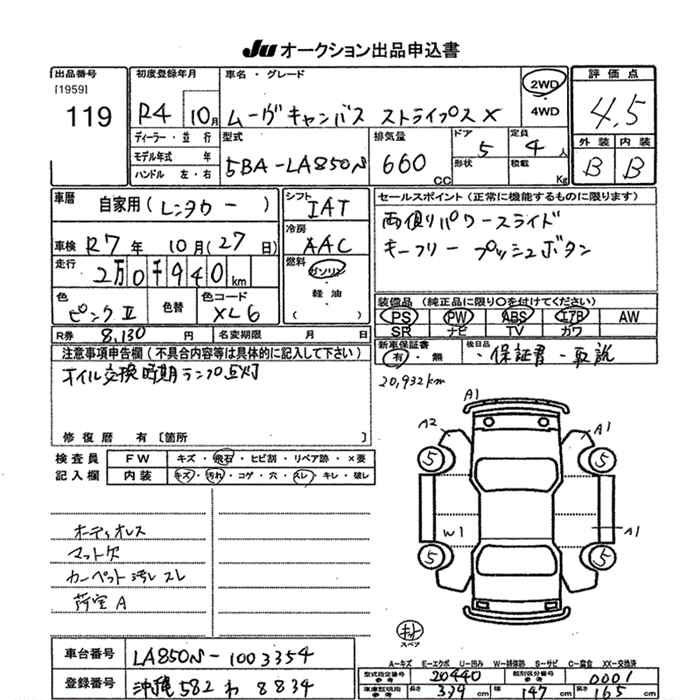 JU オークション出品申込書
出品番号 初度登録年月 車名・グレード 2WD 評価点
[1959]
119 R4 10月 ムーヴキャンバス ストライプス X 4WD 4.5
ディーラー・並行 型式 排気量 ドア 定員 外装 内装
モデル年式 年 5BA-LA850S 660 CC 5 4人 B B
ハンドル 左・右 形状 積載 Kg
車歴 自家用(レンタカー) シフト IAT セールスポイント(正常に機能するものに限ります)
車検 R7年 10月(27日) 冷房 AAC 両側パワースライド
走行 2万0千940km 燃料 ガソリン キーフリー プッシュボタン
・
軽油
( )
色 ピンクII 色替 色コード XL6 装備品 (純正品に限り○を付けてください)
PS PW ABS エアB AW
SR ナビ TV カワ
R券 8,130円 名変期限 月 日 新車保証書 有・無 後日品 ・保証書 - 取説
注意事項申告欄(不具合内容等は具体的に記入して下さい)
オイル交換時期ランプ点灯
20,932km
修復歴 有 [箇所 ]
検査員 FW キズ・飛石・ヒビ割・リペア跡・×要
記入欄 内装 キズ・汚れ・コゲ・穴・スレ・キレ・破レ
A1
A2 A1
5 5
W1 A1
5 5
オーディオレス
マット欠
カーペット汚レ スレ
荷室 A
キット
スペア
車台番号 LA850S-1003354
登録番号 沖縄 582 わ 8834
A-キズ E-エクボ U-凹み W-補修跡 S-サビ C-腐食 XX-交換済
型式指定番号 参考 20440 類別区分番号 参考 0001
車庫証明用 参考 長さ 339 cm 幅 147 cm 高さ 165 cm